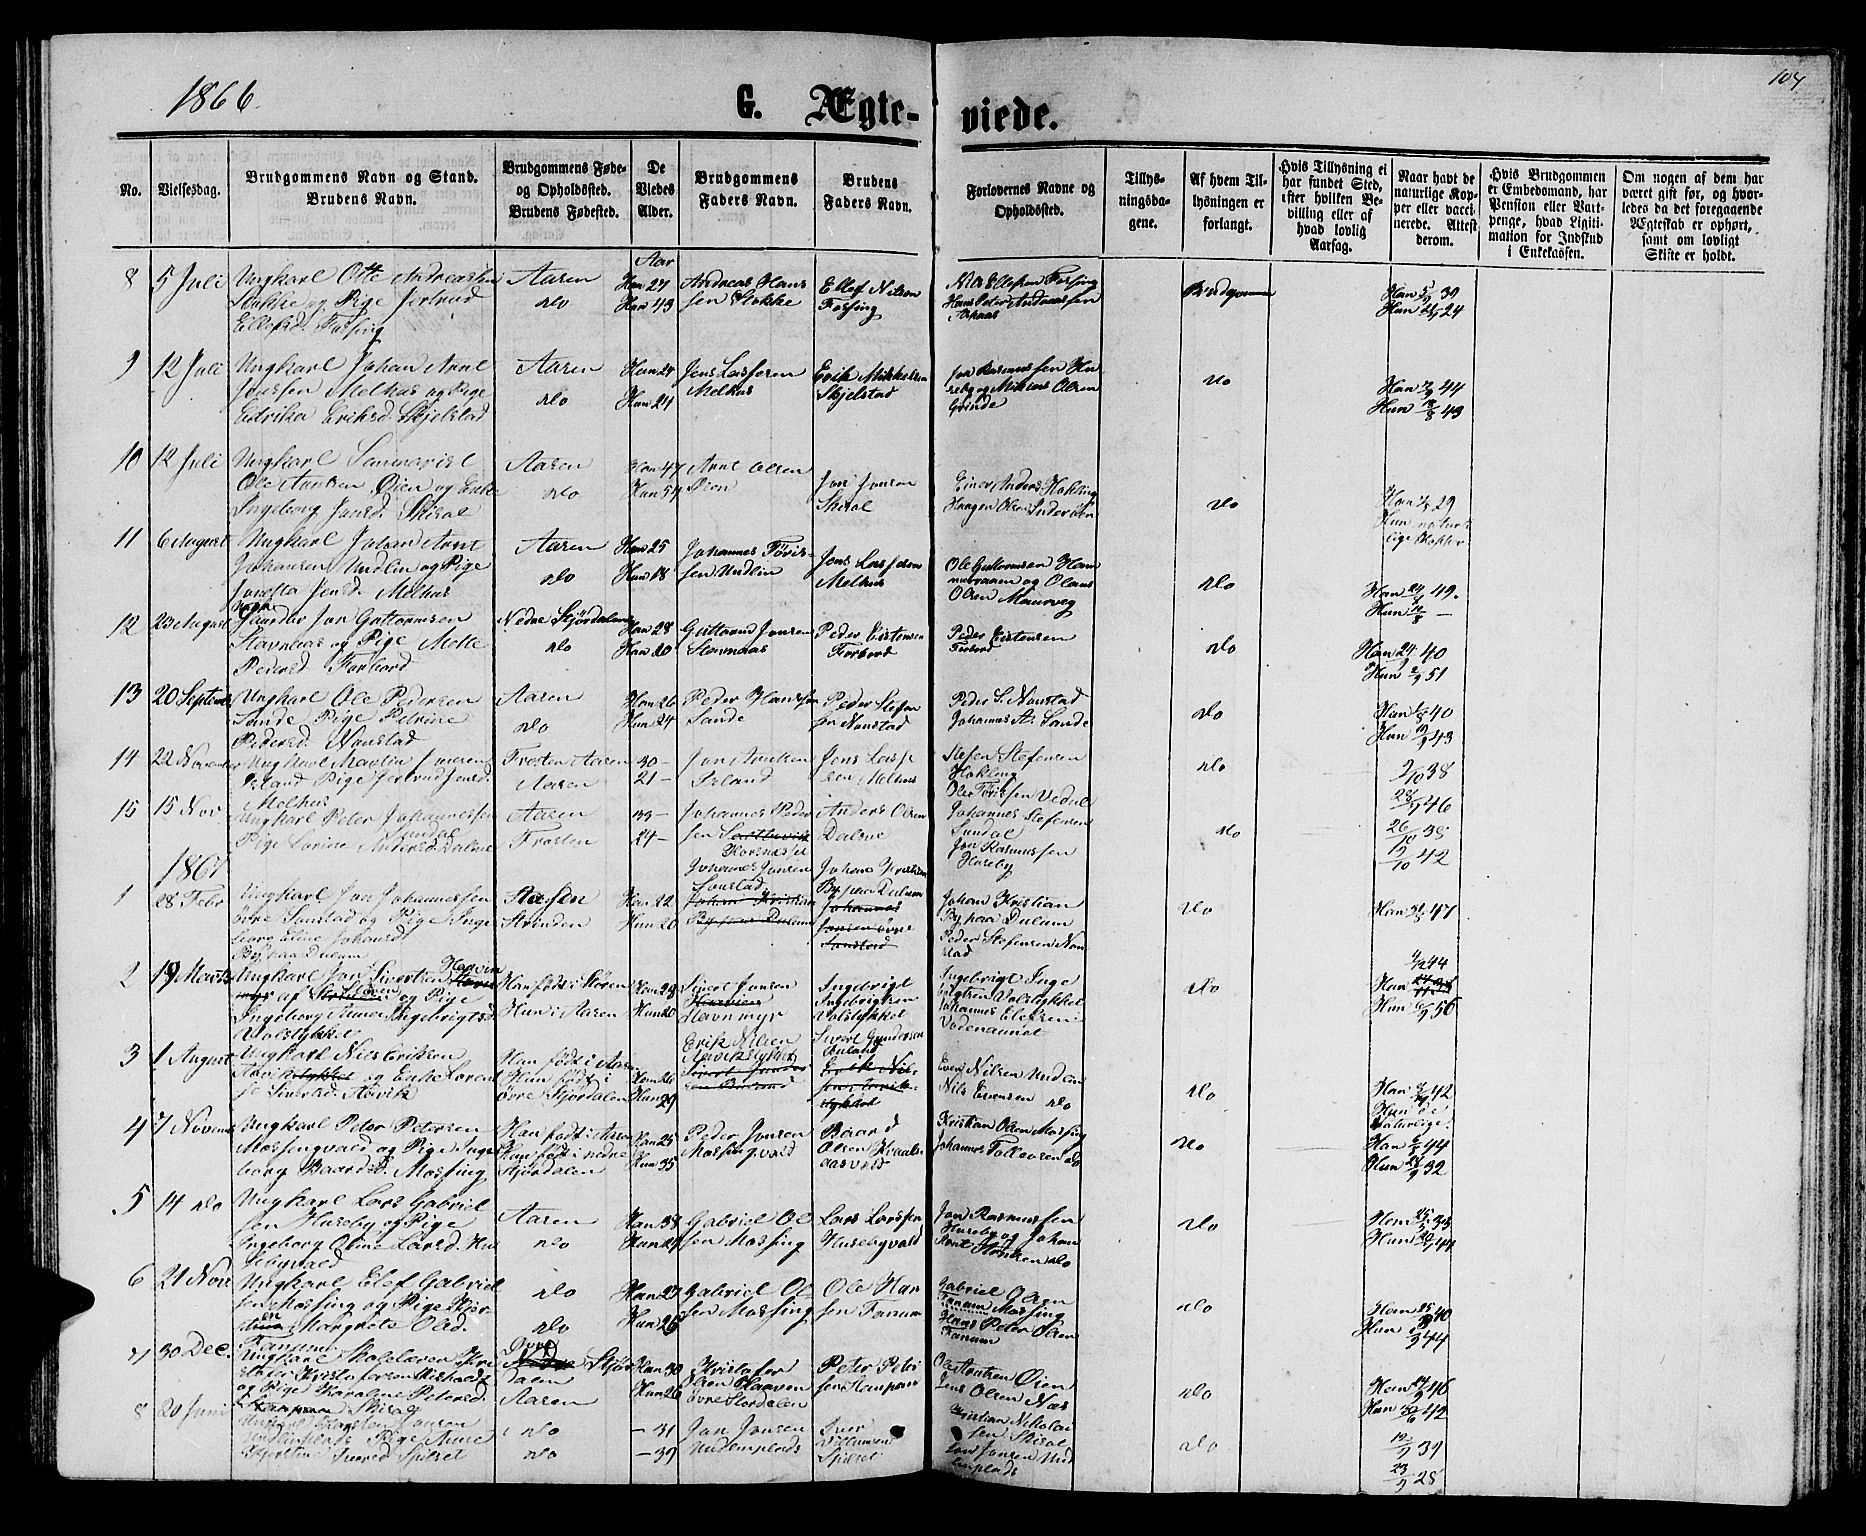 1866.
G. Ægte-
viede.
104
No.
Vielsesdag.
Brudgommens Navn og Stand.
Brudens Navn.
Brudgommens Føde-
og Opholdssted.
Brudens Fødested.
De
Viedes
Alder.
Brudgommens
Faders Navn.
Brudens
Faders Navn.
Forlovernes Navne og
Opholdssted.
Tillys-
ningsda-
gene.
Af hvem Til-
lysningen er
forlangt.
Hvis Tillysning ei
har fundet Sted,
efter hvilken Be-
villing eller af
hvad lovlig
Aarsag.
Naar havt de
naturlige Kop-
per eller vacci-
nerede. Attest
derom.
Hvis Brudgommen
er Embedsmand, har
Pension eller Vart-
penge, hvad Ligiti-
mation for Indskud
i Enkekassen.
Om nogen af dem har
været gift før, og hvor-
ledes da det foregaaende
Ægteskab er ophørt,
samt om lovligt
Skifte er holdt.
8 5 Juli Ungkarl Otte Andreassen
Stokke og Pige Jertrud
Ellefsd. Forsing
Aasen
do
Aar
Han 27
Hun 43
Andreas Hans
sen Stokke
Ellef Nilsen
Forsing
Nils Ellefsen Forsing
Hans Peter Andreassen
Brudgommen
Han 5/9 39
Hun 24
9 12 Juli Ungkarl Johan Arnt
Jenssen Melhus og Pige
Edvrika Eriksd. Skjelstad
Aasen
do
Han 24
Hun 24
Jens Lassesen
Melhus
Erik Mikkelsen
Skjelstad
Jon Rasmussen Hu
seby og Mikias Olsen
Grinde
do
Han 44
Hun 18/8 43
10 12 Juli Ungkarl Seminarist
Ole Arntsen Øien og Enke
Ingeborg Jonsd. Skiral
Aasen
do
Han 47
Hun 54
Arnt Olsen
Øien
Jon Jonsen
Skiral
Einer Anders. Hokling
Haagen Olsen
do
Han 29
Hun natur
lige Kopper
11 6 August Ungkarl Johan Arnt
Johansen Undlin og Pige
Jensd. Melhus
Aasen
do
Han 25
Hun 18
Johannes Tøris-
sen Undlin
Jens Lassesen
Melhus
Ole Guttormsen Ham
mervaaen og Olaus
Olsen Maurveg
do
Han 24/8 49.
Hun
12 23 August Gaardbr. Jon Guttormsen
Stavnaas og Pige Mette
Pedersd. Forbord
Nedre Stjørdalen
do
Han 28
Hun 20
Guttorm Jonsen
Stavnaas
Peder Eistensen
Forbord
Peder Eistensen
Forbord
do
Han 24 40
Hun 2/9 51
13 20 September Ungkarl Ole Pedersen
Sande Pige Petrine
Pedersd. Nonstad
Aasen
do
Han 26
Hun 24
Peder Hanssen
Sande
Peder Stefen
sen Nonstad
Peder S. Nonstad
Johannes A. Sande
do
Han 1/8 40
Hun 19/9 43
14 22 November Ungkarl Martin Jonsen
Pige Jertrud Jensd.
Melhus
Frosten Aasen
Aasen
30 —
21 —
Jon Arntsen
Jens Lasse
sen Melhus
Stefen Stefensen
Hokling
Ole Tørissen Vedul
do
9/10 38
28/9 46
15 15 Nov. Ungkarl Peter Johannessen
Sundal
Pige Sarine Andersd. Dalene
Aasen
Frosten
33 —
24 —
Johannes Peder
sen
Anders Olsen
Dalene
Johannes Stefensen
Sundal
Jon Rasmussen
Huseby
do
26/10 38
19/10 42
1867
1 28 Febr Ungkarl Jon Johannessen
øvre Sonstad og Pige Inge
borg Eline Johansd.
Bypaa Dulum
Aasen
Strinden
Han 22
Hun 20
Johannes Jonsen
Sonstad
Johan Kristian
Bypaa Dulum
Johan Kristian
Bypaa Dulum
Johannes
Jonsen øvre
Sonstad
Johan Kristian
Bypaa Dulum
Peder Stefensen Non
stad
do
Han 47
2 19 Marts Ungkarl Jon Sivertsen
og Pige
Ingeborg Ingebrigtsd.
Valstykket
Han født i Støren
Hun i Aasen
Han 23
Hun 20
Sivert Jonsen
Havnmyr
Ingebrigt
Ingebrigtsen
Valstykket
Ingebrigt Inge
brigtsen Valstykket
Johannes Elefsen
Vodenaunet
do
44
Han
Hun 56
3 1 August Ungkarl Nils Eriksen
og Enke Loren
se Siversd. Aavik
Han født i Aasen
Hun født i
øvre Stjørdalen
Han 26
Hun 29
Erik Nilsen
Sivert Gundersen
Even Nilsen Undlin
Nils Evensen do
do
Han 42
Hun de
naturlige.
4 7 November Ungkarl Peter Petersen
Mossingvald og Pige Inge
borg Baardsd. Mossing
Han født i Aasen
Hun født i nedre
Stjørdalen
Han 25
Hun 35
Peder Jonsen
Mossingvald
Baard
Olsen Kvaalen
aasvald
Kristian Olsen Mossing
Johannes Tollefsen do
do
Han 44
Hun 32
5 14 do Ungkarl Lars Gabriel
sen Huseby og Pige
Ingeborg Oline Larsd. Hu
sebyvald
Aasen
do
Han 38
Hun 24
Gabriel Ol
sen Mossing
Lars Larssen
Husebyvald
Jon Rasmussen
Huseby og Johan
do
do
Han 33
Hun 44
6 21 Nov Ungkarl Elef Gabriel
sen Mossing og Pige
Margrete Olsd.
Fanum
do
do
Han 27
Hun 26
Gabriel Ol
sen Mossing
Ole Han
sen Fanum
Gabriel Olsen
Mossing
Hans Peter Olsen
Fanum
do
Han 25 40
Hun 44
7 30 Dec. Ungkarl Skolelærer Kri
stofer Kristofersen
og Pige Karoline Petersd.
Skirag
Øvre
Stjør
dalen
Aasen
Han 30
Hun 26
Kristofer
Olsen Haaven
Øvre Stordalen
Peter Peter
sen
Ole Arntsen Øien
Jens Olsen Næs
do
Han 46
Hun 42
8 20 Juni Ungkarl Karsten Jonsen
Undlinplads Pige Anne
Kjerstine Iversd. Spilset
do
do
— 31
— 39
Jon Jonsen
Undlenplads
Iver
Villumsen
Spilset
Kristian Nikolai
sen Skiral
Jon Jonsen Und
lenplads
do
19/9 39
23/9 28